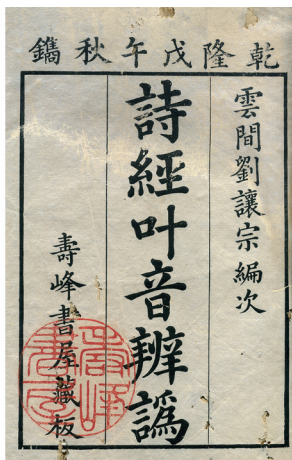 乾隆戊午秋鐫
雲間劉讓宗編次
詩經叶音辨譌
壽峰書屋藏板
壽峰書屋